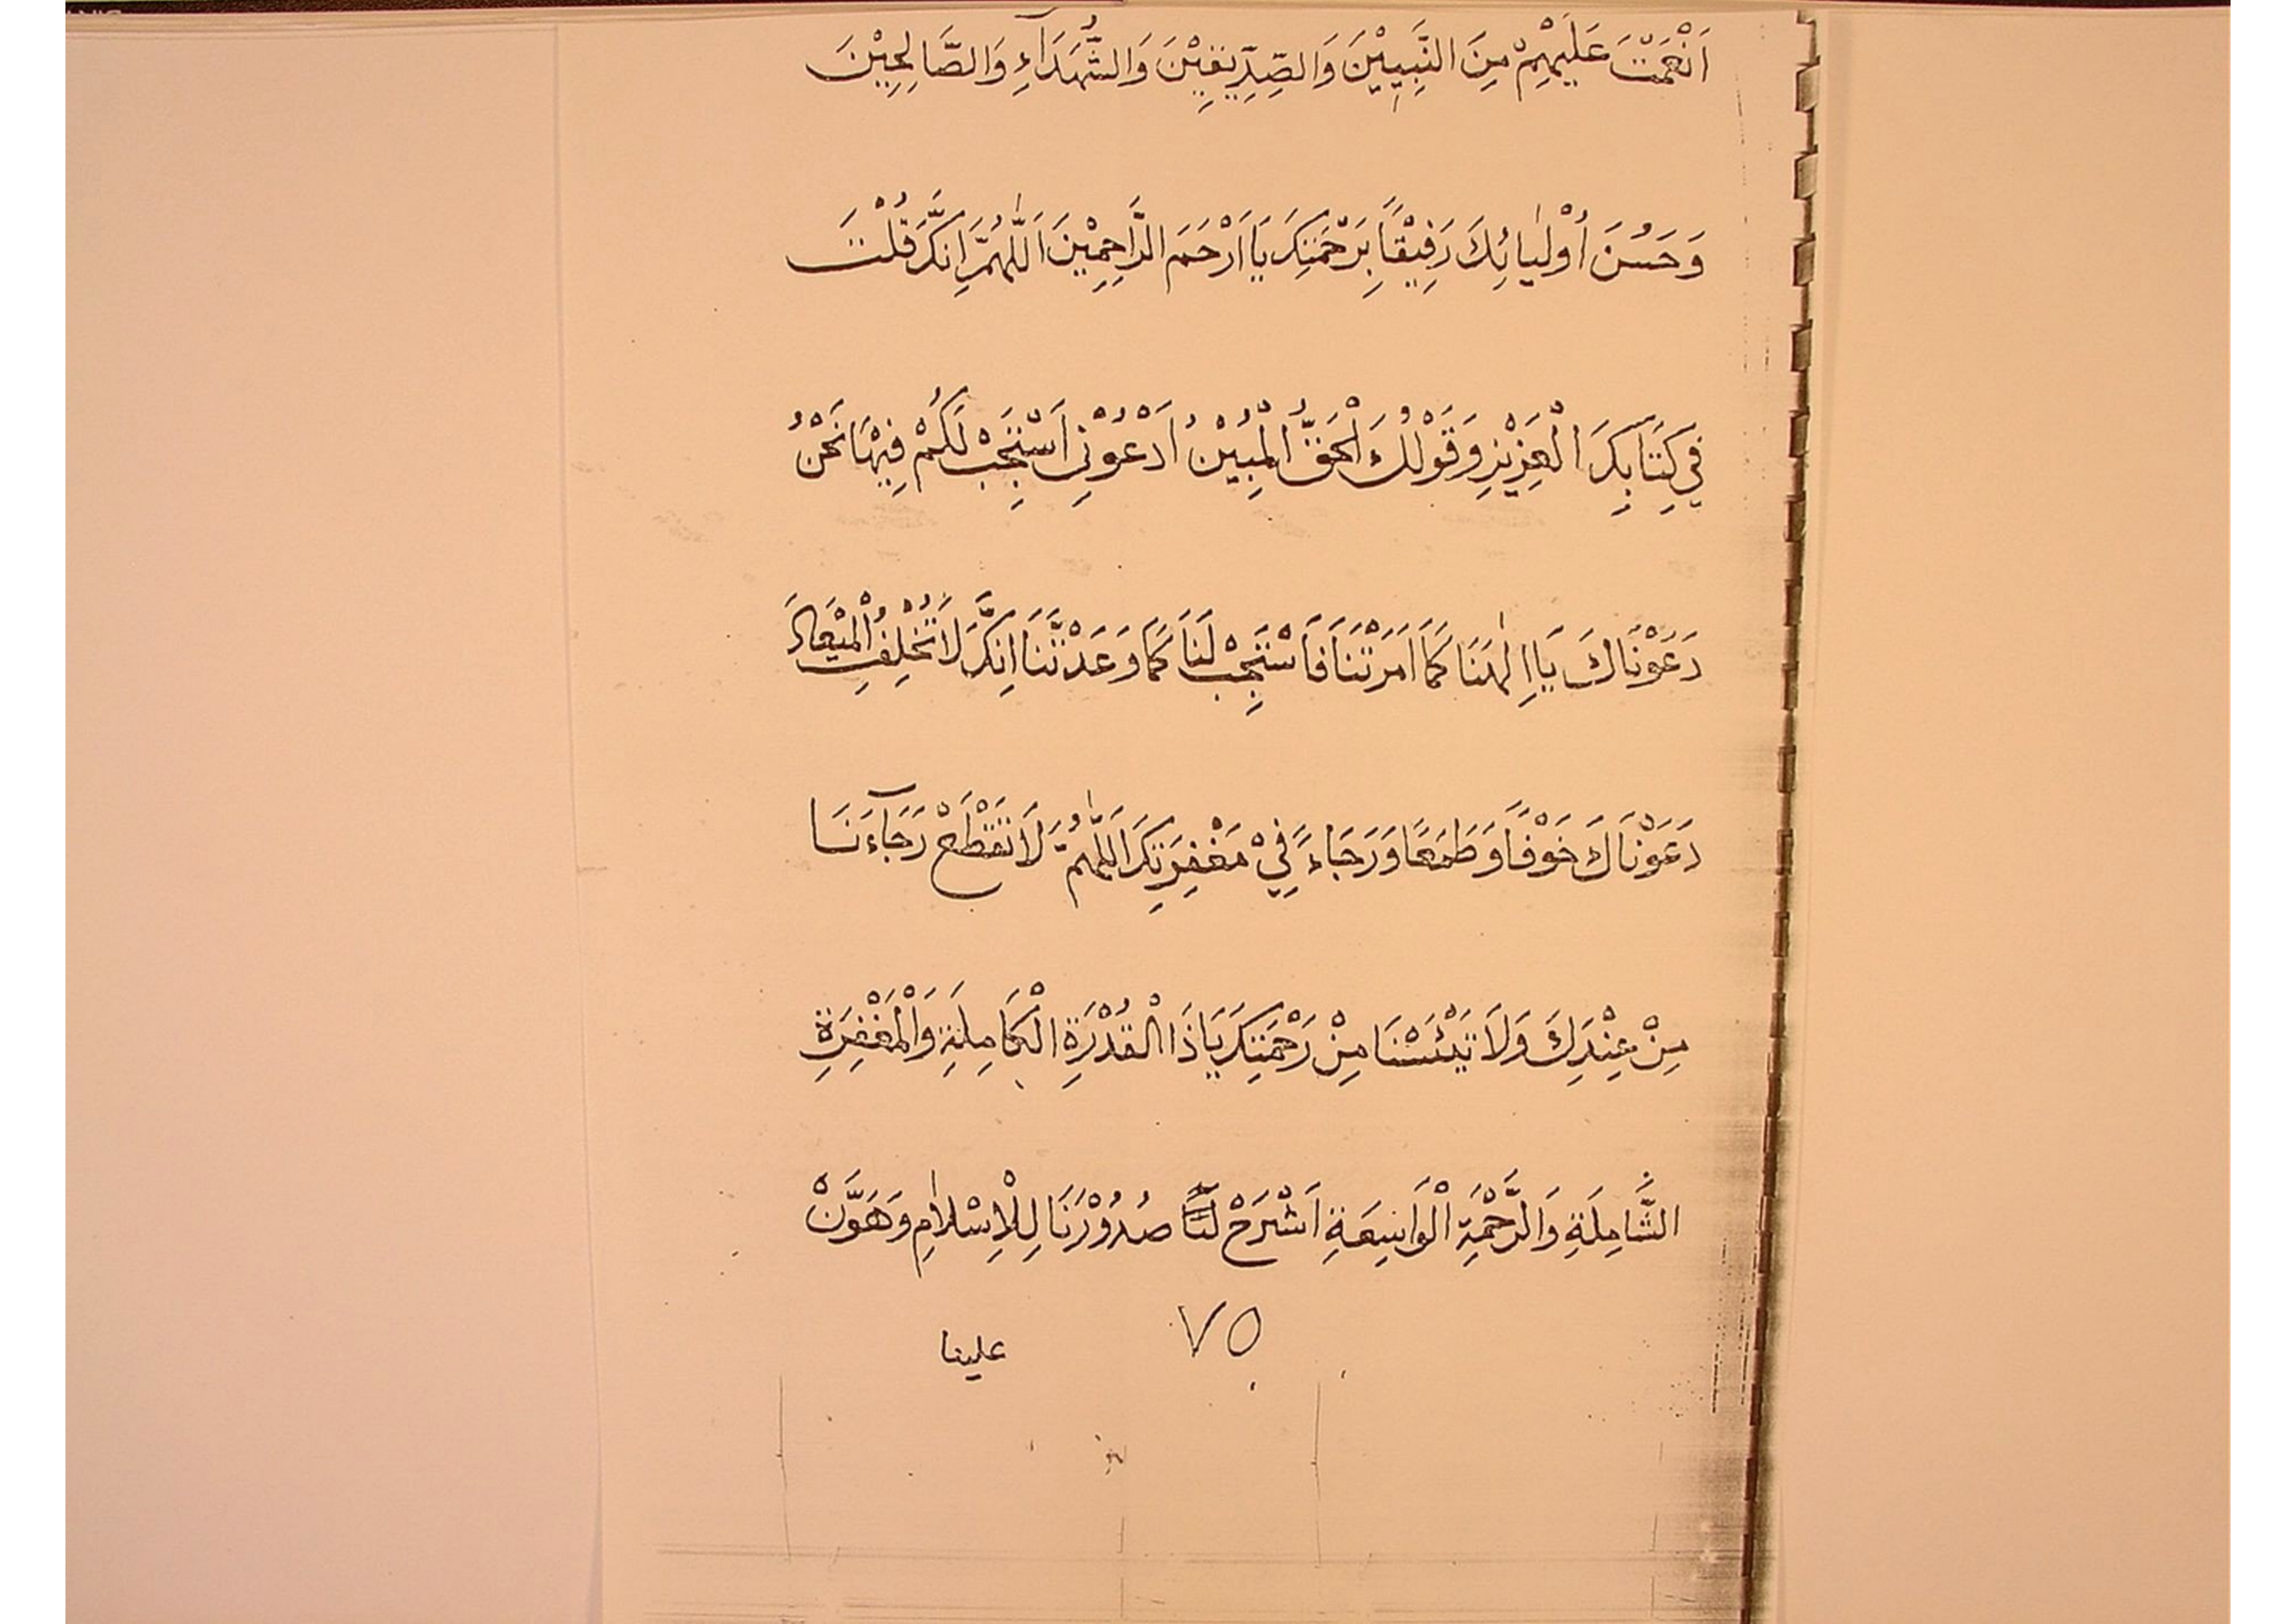 اَنْعَمْتَ عَلَيْهِمْ مِنَ النَّبِيِيْنَ وَالصِّدِّيْقِيْنَ وَالشُّهَدَآءِ وَالصَّالِحِيْنَ
وَحَسُنَ أُوْلٰيائِكَ رَفِيْقاً بِرَحْمَتِكَ يَا اَرْحَمَ الرَّاحِمِيْنَ اَللّٰهُمَّ اِنَّكَ قُلْتَ
فِي كِتَابِكَ الْعَزِيْزِ وَقَوْلُكَ الْحَقُّ الْمُبِيْنُ اُدْعُوْنِي اَسْتَجِبْ لَكُمْ فِيْهَا نَحْنُ
دَعَوْنَاكَ يَا اِلٰهَنَا كَمَا اَمَرْتَنَا فَاسْتَجِبْ لَنَا كَمَا وَعَدْتَّنَا اِنَّكَ لَا تُخْلِفُ الْمِيْعَادَ
دَعَوْنَاكَ خَوْفًا وَطَمَعًا وَرَجَاءً فِيْ مَغْفِرَتِكَ اَللّٰهُمَّ لَا تَقْطَعْ رَجَآءَنَا
مِنْ عِنْدِكَ وَلَا تَيْئَسْنَا مِنْ رَحْمَتِكَ يَا ذَا الْقُدْرَةِ الْكَامِلَةِ وَالْمَغْفِرَةِ
الشَّامِلَةِ وَالرَّحْمَةِ الْوَاسِعَةِ اَشْرَحْ لَنَا صُدُوْرَنَا لِلْاِسْلٰامِ وَهَوَّنْ
٧٥
علينا